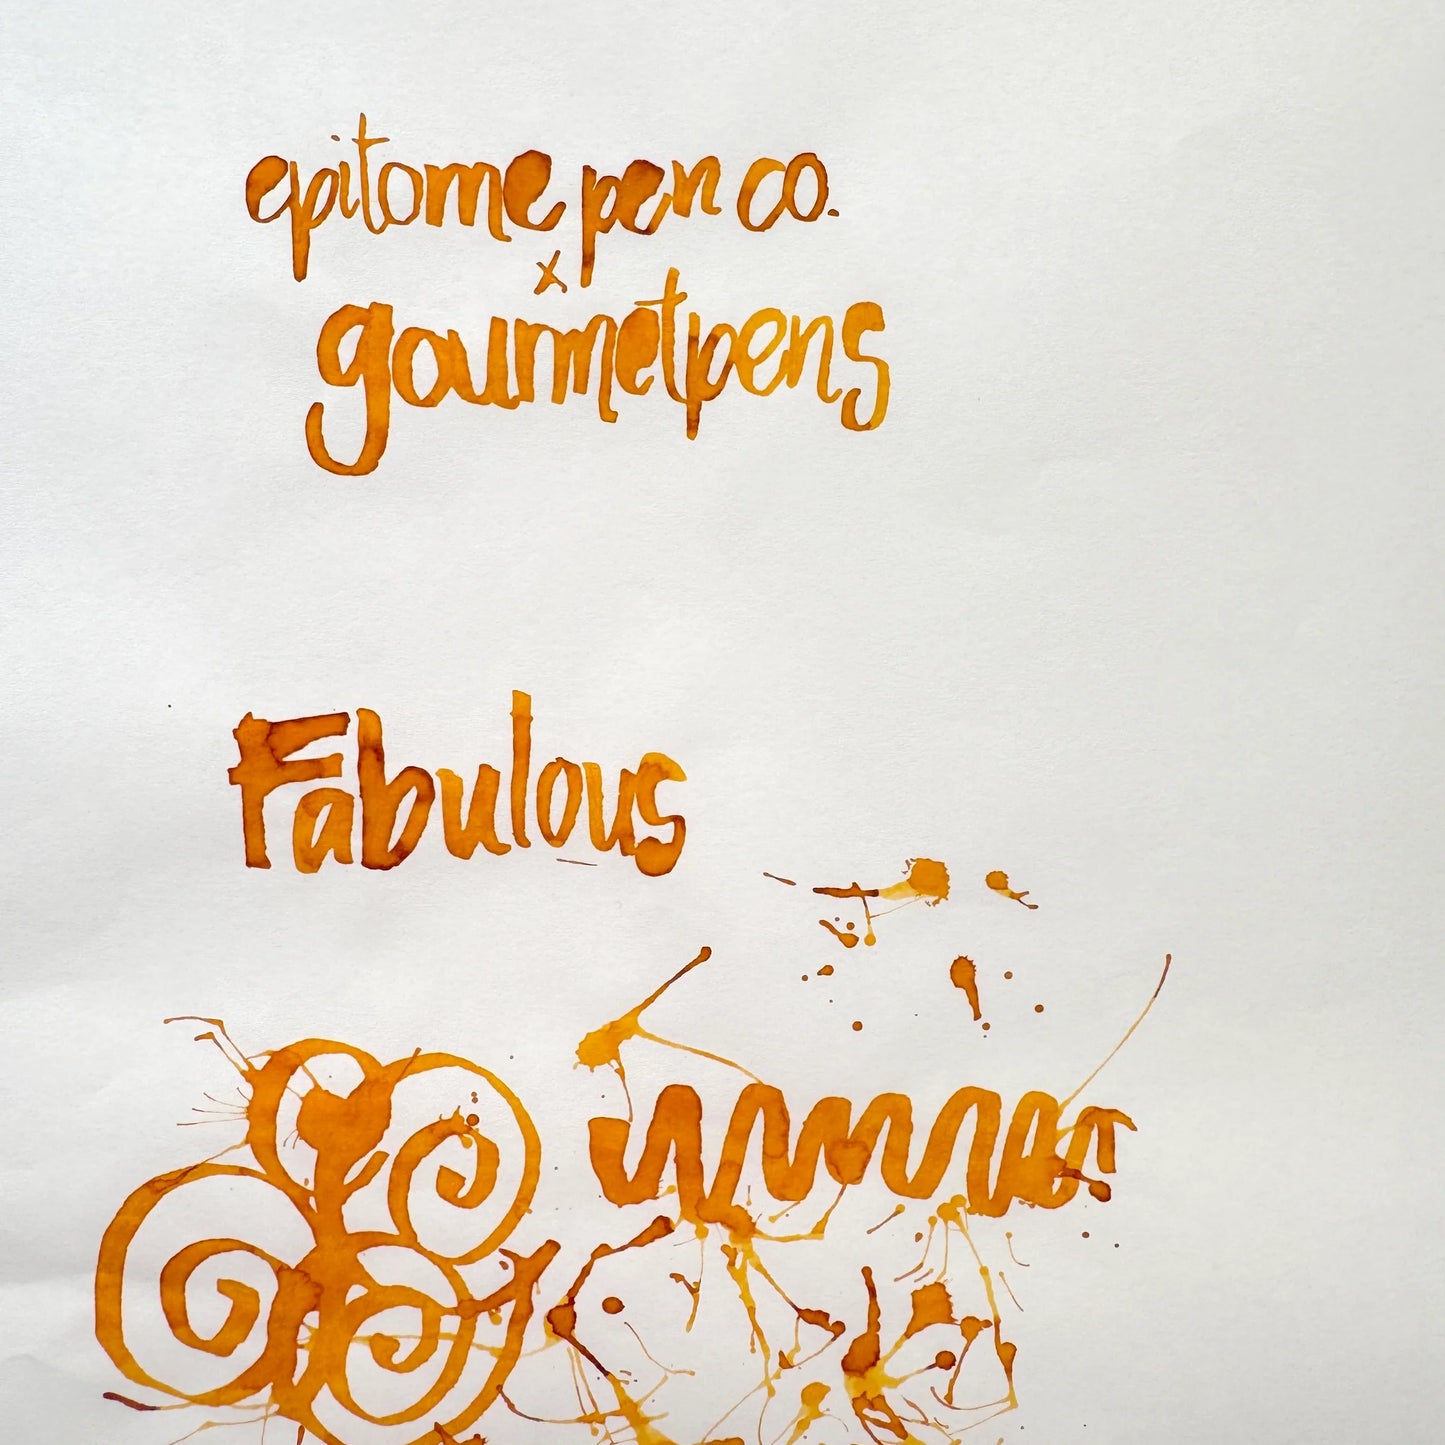 epitome pen co.
x
gourmetpens
Fabulous